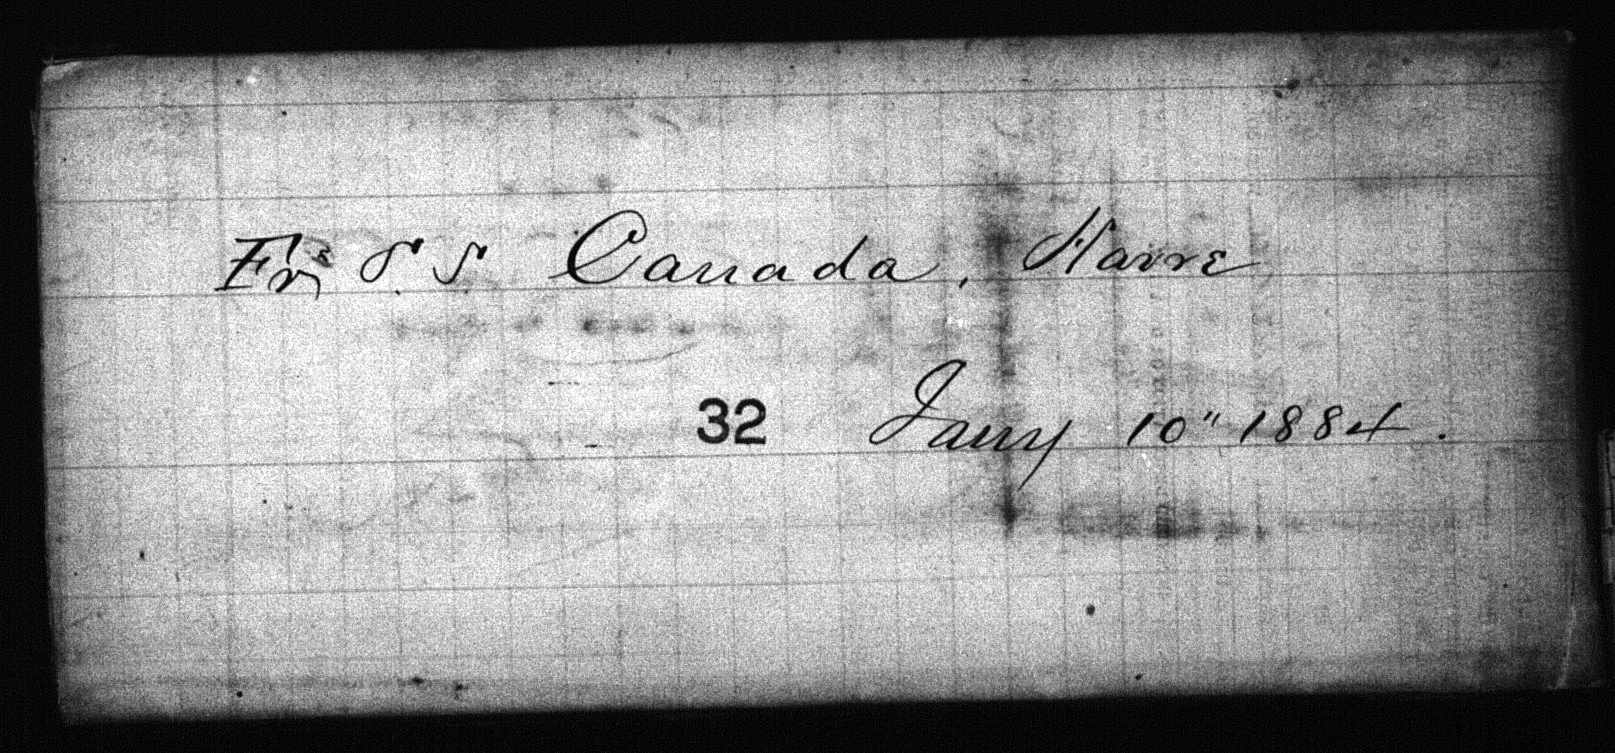 Frs S.S. Canada, Havre
32 Jany 10" 1884.